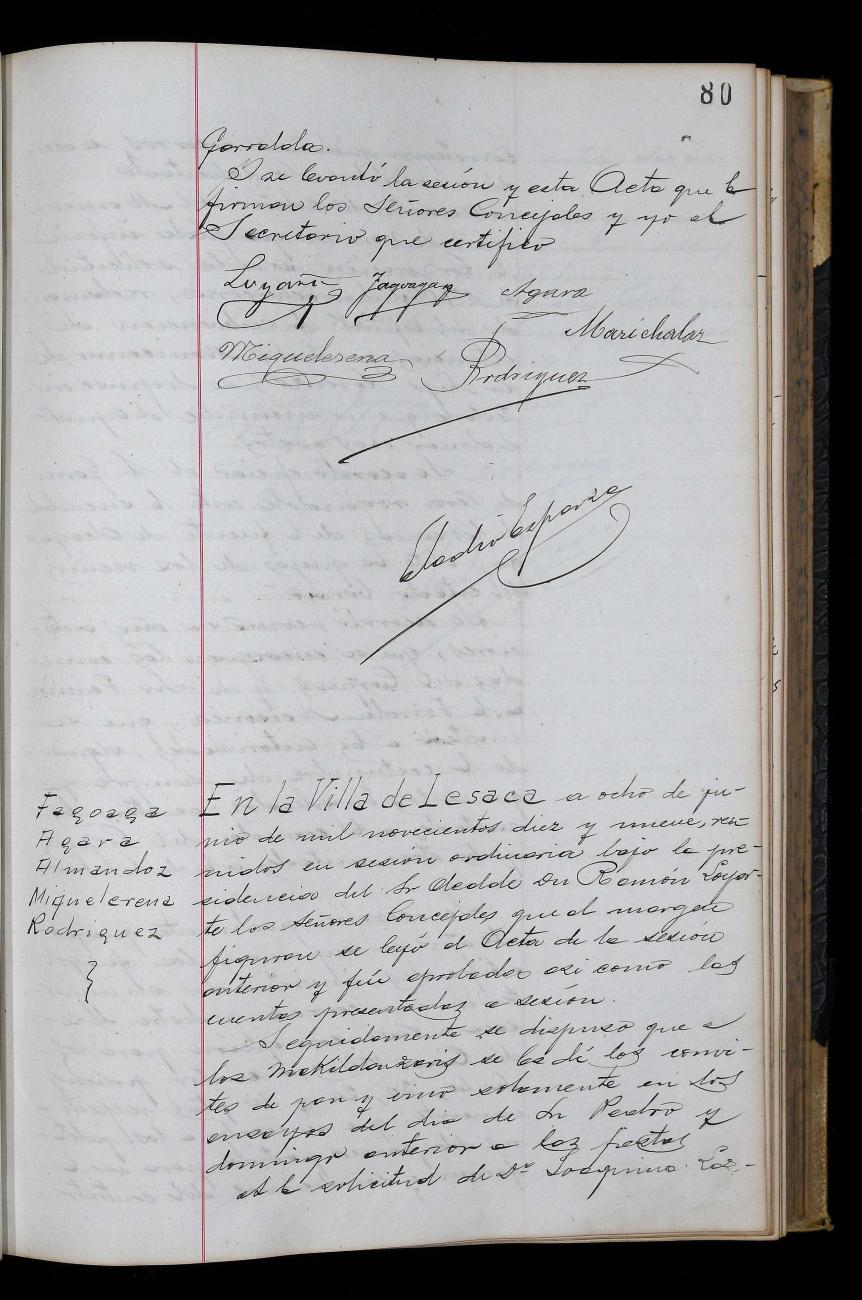 80
Garralda.
I se levantó la sesión y esta Acta que la
firman los Señores Concejales y yo el
Secretario que certifico
Fagoaga Agara
Marichalar
Miquelerena
Rodriguez
Eladio Esparza
Fagoaga
Agara
Almandoz
Miquelerena
Rodriguez
En la Villa de Lesaca a ocho de ju-
nio de mil novecientos diez y nueve, reu-
nidos en sesión ordinaria bajo la pre-
sidencia del Sr Alcalde Dn Ramón Loyar-
te los Señores Concejales que al margen
figuran se leyó el Acta de la sesión
anterior y fué aprobada asi como las
cuentas presentadas a sesión.
Seguidamente se dispuso que a
los makildanzaris se les dé los convi-
tes de pan y vino solamente en los
ensayos del dia de Sn Pedro y
domingo anterior a las fiestas
A la solicitud de Dª Joaquina